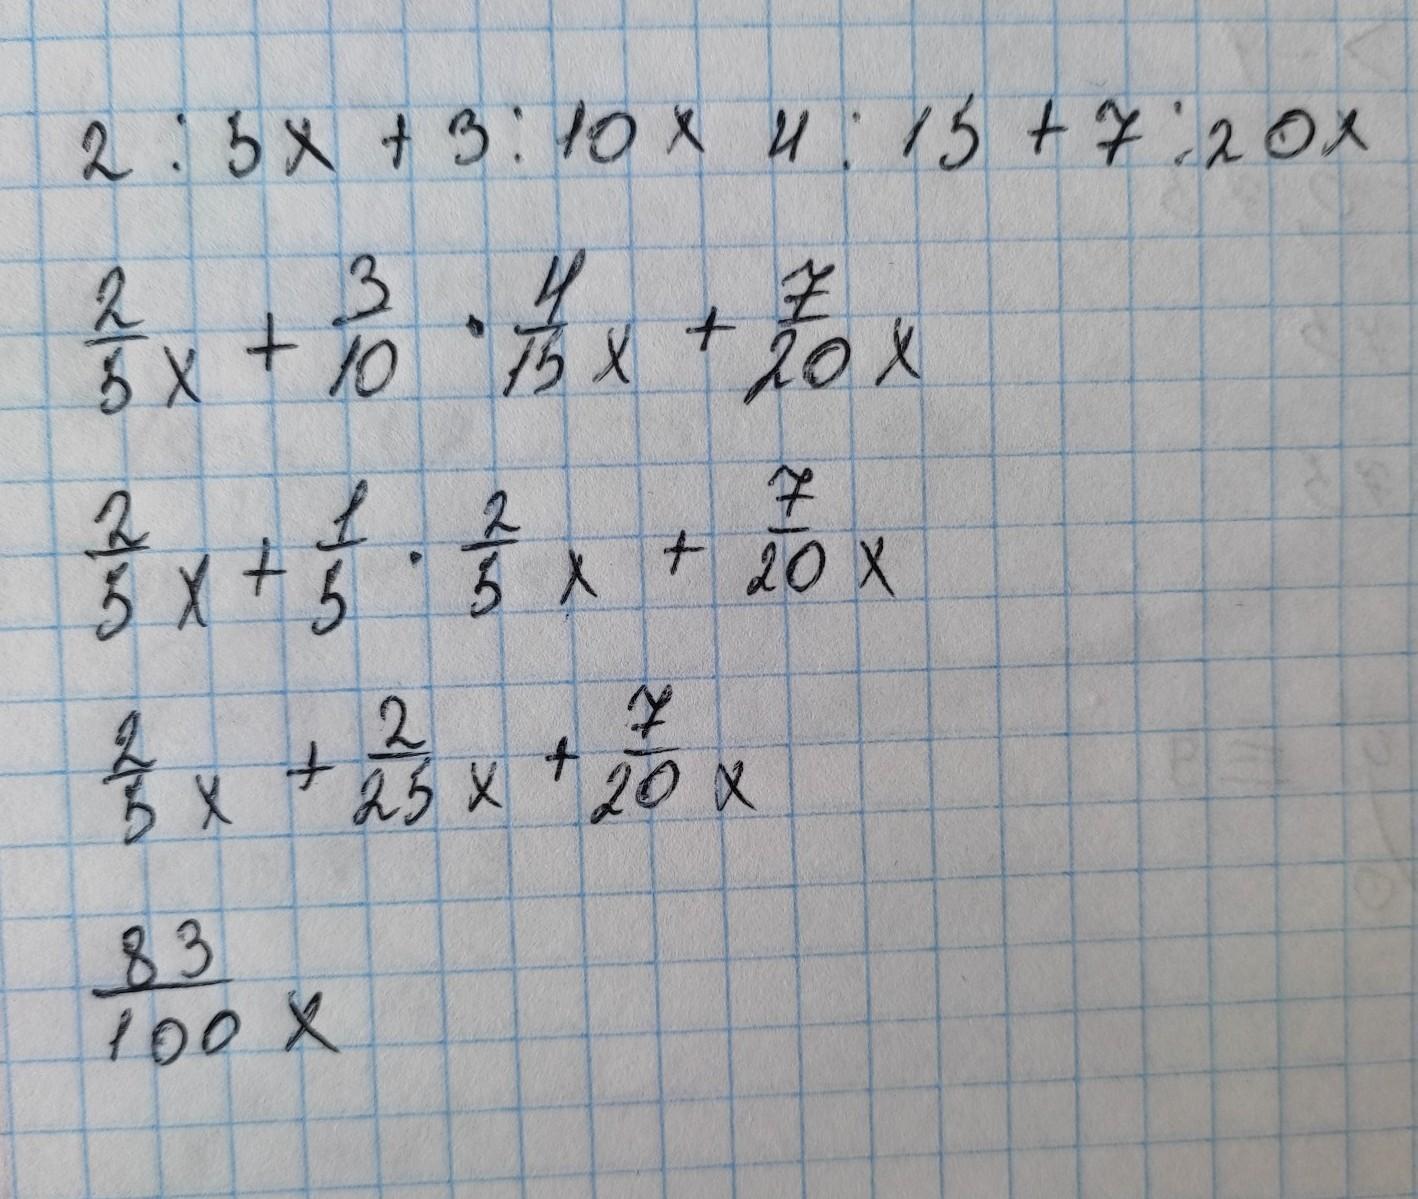 2 : 5x + 3 : 10x 4 : 15 + 7 : 20x
2/5 x + 3/10 · 4/15 x + 7/20 x
2/5 x + 1/5 · 2/5 x + 7/20 x
2/5 x + 2/25 x + 7/20 x
83/100 x